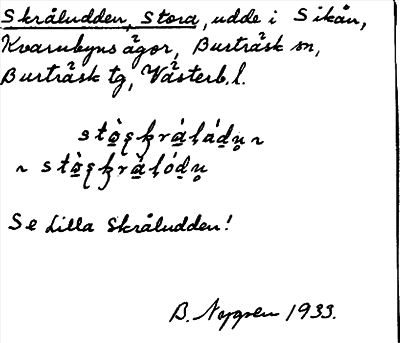 Skråludden, Stora, udde i Sikån,
Kvarnbyns ägor, Burträsk sn,
Burträsk tg, Västerb. l.
Se Lilla Skråludden!
B. Nygren 1933.